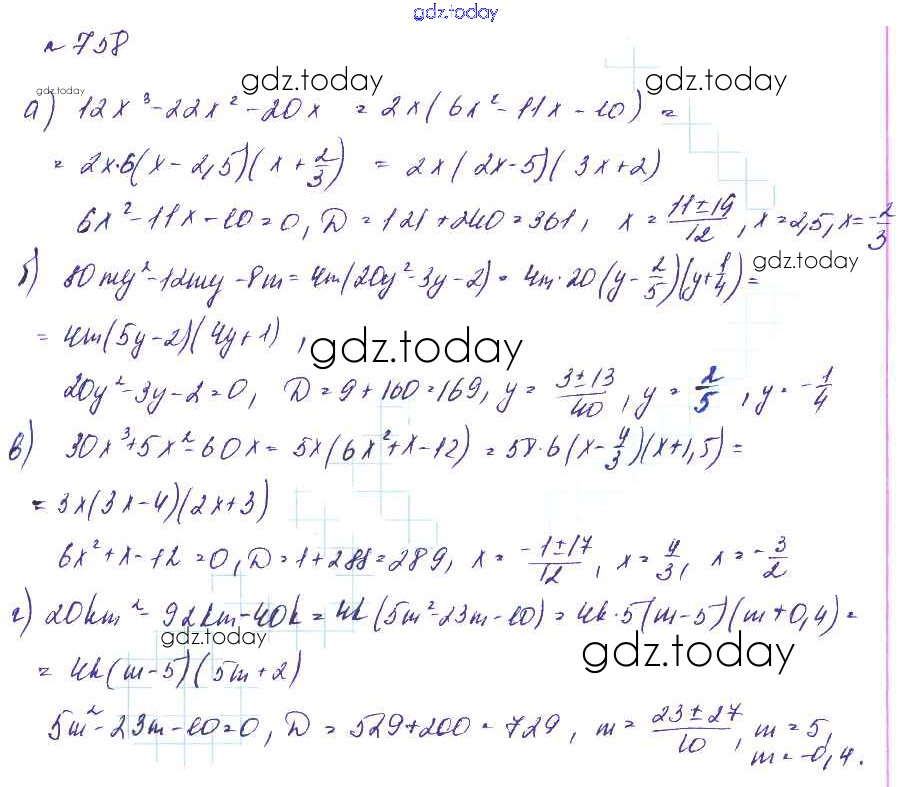 gdz.today
№ 758
gdz.today gdz.today gdz.today
а) 12x³-22x²-20x = 2x(6x²-11x-10) =
= 2x·6(x-2,5)(x+2/3) = 2x(2x-5)(3x+2)
6x²-11x-10=0, D=121+240=361, x = (11±19)/12, x=2,5, x=-2/3
gdz.today
б) 80my²-12my-8m=4m(20y²-3y-2)=4m·20(y-2/5)(y+1/4)=
= 4m(5y-2)(4y+1),
gdz.today
20y²-3y-2=0, D=9+160=169, y = (3±13)/40, y = 2/5, y=-1/4
в) 30x³+5x²-60x=5x(6x²+x-12)=5x·6(x-4/3)(x+1,5)=
= 3x(3x-4)(2x+3)
6x²+x-12=0, D=1+288=289, x = (-1±17)/12, x=4/3, x=-3/2
г) 20km²-92km-40k=4k(5m²-23m-10)=4k·5(m-5)(m+0,4)=
gdz.today gdz.today
= 4k(m-5)(5m+2)
5m²-23m-10=0, D=529+200=729, m = (23±27)/10, m=5,
m=-0,4.